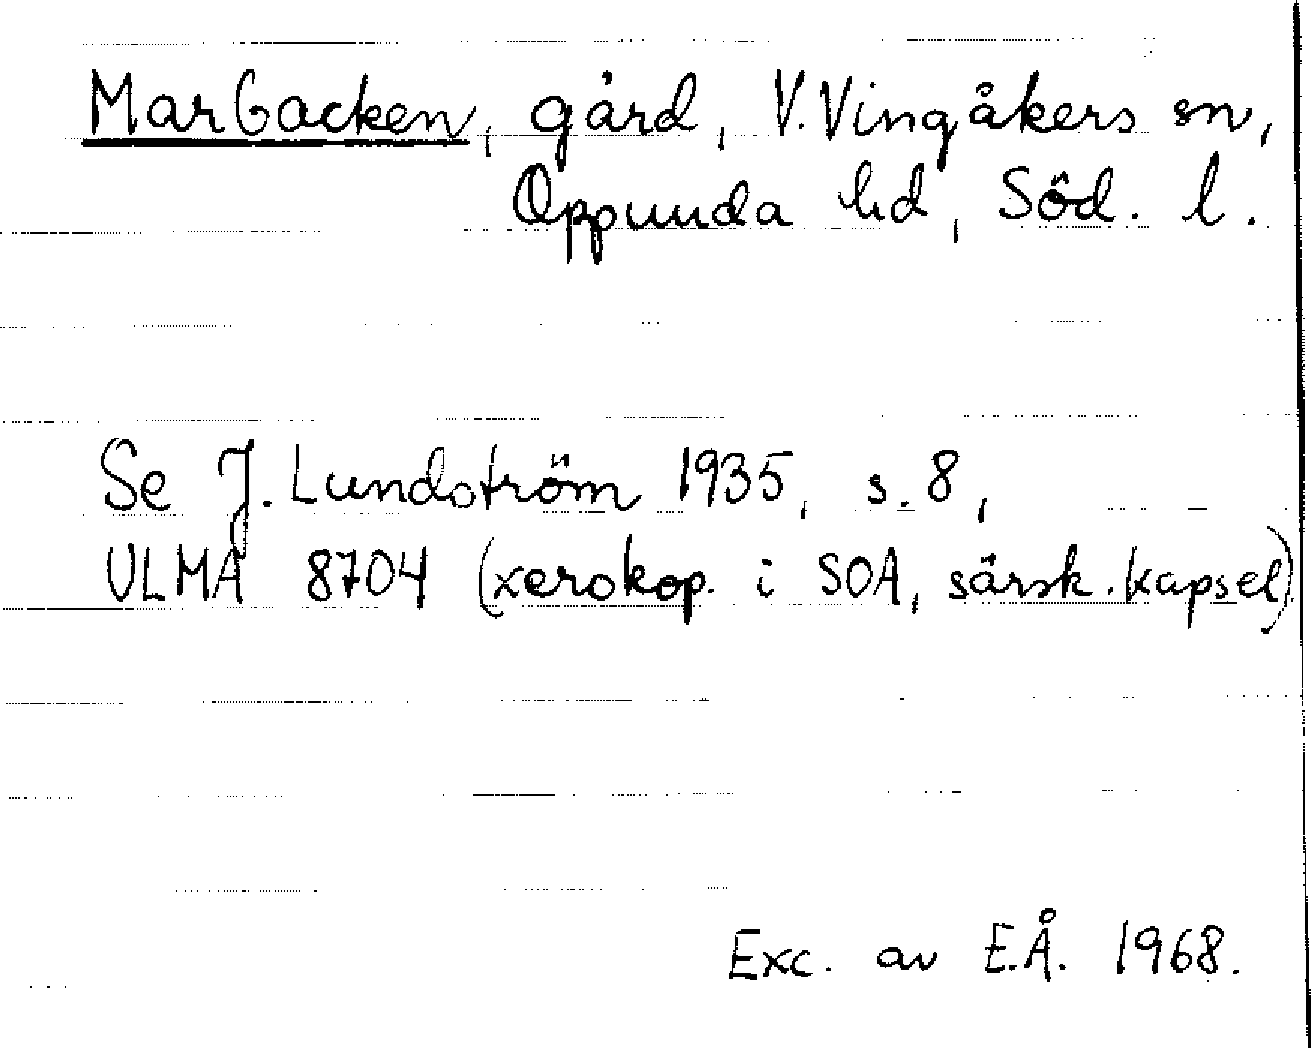 Marbacken, gård, V. Vingåkers sn,
Oppunda hd, Söd. l.
Se J. Lundström 1935, s. 8,
ULMA 8704 (xerokop. i SOA, särsk. kapsel)
Exc. av E.Å. 1968.